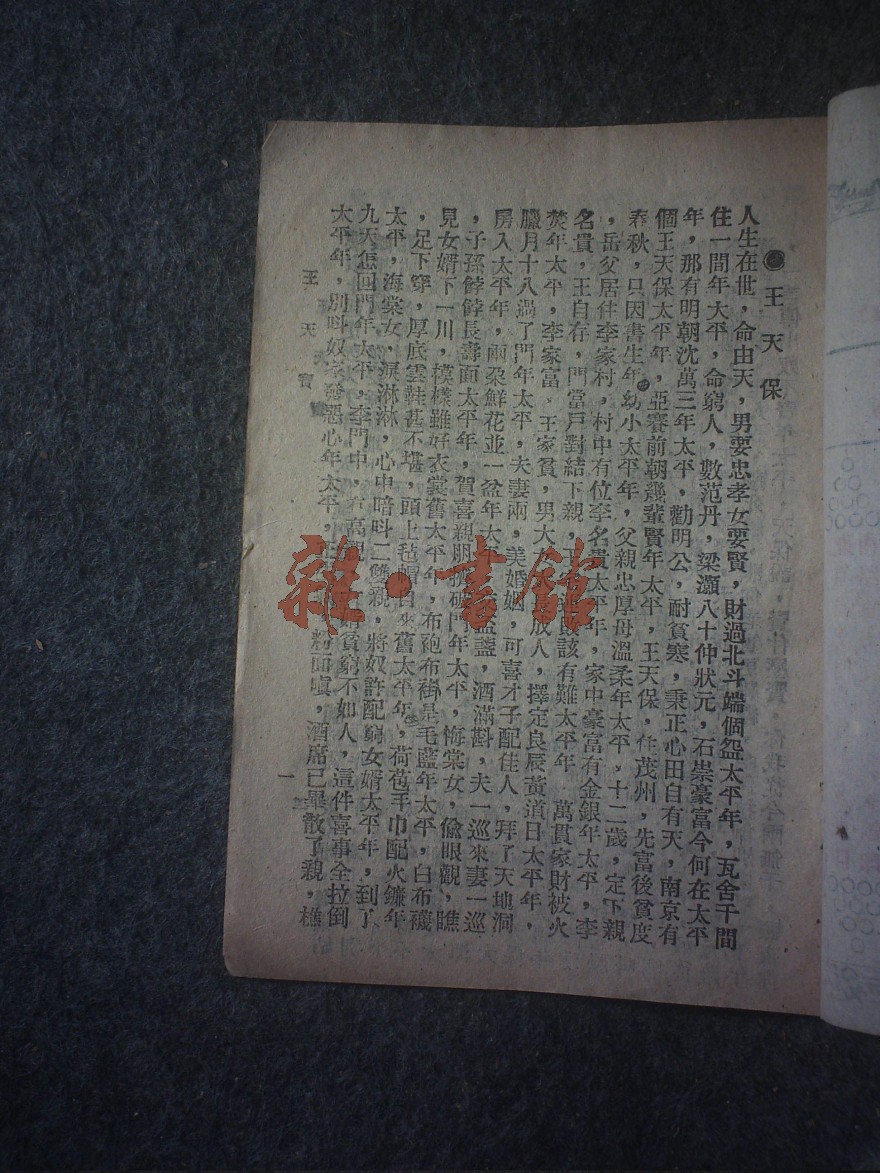 ●王天保
人生在世，命由天，男要忠孝女要賢，財過北斗端個盌太平年，瓦舍千間
住一間年太平，命窮人，數范丹，梁灝八十仲狀元，石崇豪富今何在太平
年，那有明朝沈萬三年太平，勸明公，耐貧寒，秉正心田自有天，南京有
個王天保太平年，亞賽前朝幾輩賢年太平，王天保，住茂州，先富後貧度
春秋，只因書生年幼小太平年，父親忠厚母溫柔年太平，十二歲，定下親
，岳父居住李家村，村中有位李名貴太平年，家中豪富有金銀年太平，李
名貴，王自存，門當戶對結下親，該有難太平年，萬貫家財被火
焚年太平，李家富，王家貧，男大放人，擇定良辰黃道日太平年，
臘月十八過了門年太平，夫妻兩，美婚姻，可喜才子配佳人，拜了天地洞
房入太平年，兩朶鮮花並一盆年太平，盞，酒滿斟，夫一巡來妻一巡
，子孫餑餑長壽面太平年，賀喜親朋擠破門年太平，海棠女，偸眼觀，瞧
見女婿下一川，模樣雖好衣裳舊太平年，布袍布褂是毛藍年太平，白布襪
，足下穿，厚底雲鞋甚不堪，頭上毡帽目來舊太平年，荷苞手巾配火鐮年
太平，海棠女，淚淋淋，心中暗呌二雙親，將奴許配窮女婿太平年，到了
九天怎回門年太平，李門中，有高親，貧窮不如人，這件喜事全拉倒
太平年，別呌奴家發恶心年太平，粉面嗔，酒席已畢散了親，樵
王天寶
一
雜·書館